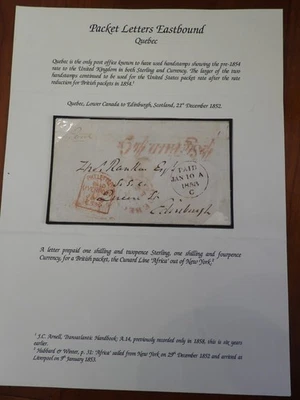 Packet Letters Eastbound
Quebec
Quebec is the only post office known to have used handstamps showing the pre-1854
rate to the United Kingdom in both Sterling and Currency. The larger of the two
handstamps continued to be used for the United States packet rate after the rate
reduction for British packets in 1854.¹
Quebec, Lower Canada to Edinburgh, Scotland, 21st December 1852.
Thos. Rankin Esqr
PAID
JAN 10 A
1853
C
Queen St.
Edinburgh
A letter prepaid one shilling and twopence Sterling, one shilling and fourpence
Currency, for a British packet, the Cunard Line 'Africa' out of New York.²
¹ J.C. Arnell, Transatlantic Handbook; A.14, previously recorded only in 1858, this is six years
earlier.
² Hubbard & Winter, p. 31: 'Africa' sailed from New York on 29th December 1852 and arrived at
Liverpool on 9th January 1853.